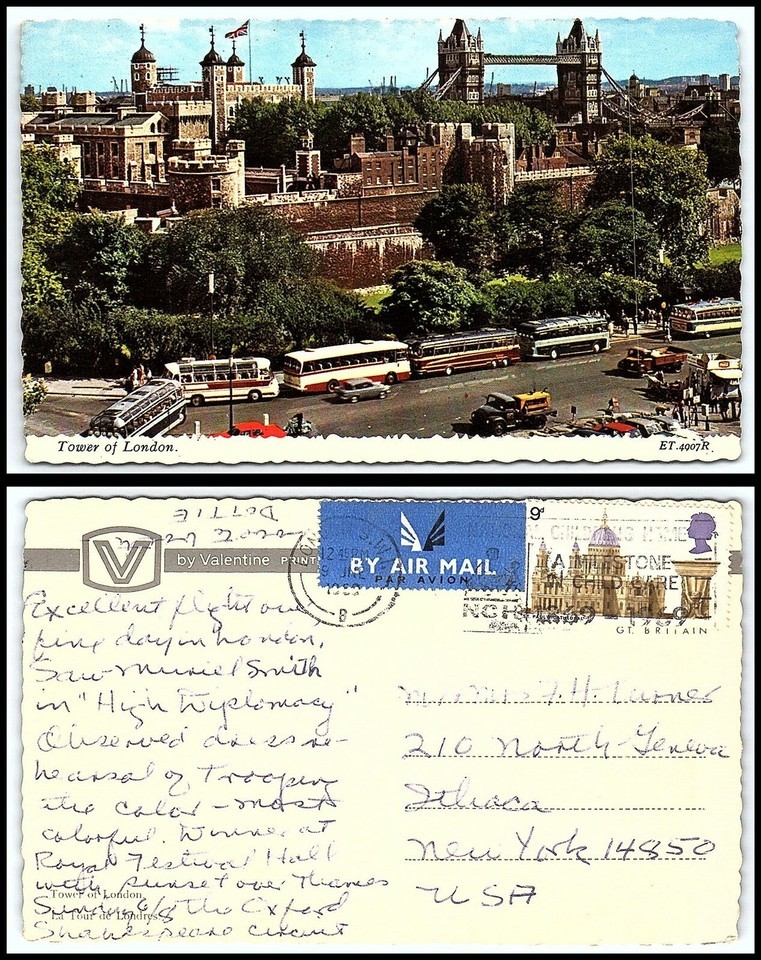 Tower of London.
ET.4907R.
DOTTIE
V
by Valentine
PRINT
BY AIR MAIL
PAR AVION
12 45 PM
9 JNE
1969
8
9d
A MILESTONE
IN CHILD CARE
1869 - 1969
GT. BRITAIN
Excellent flight over
fine day in London,
Saw Muriel Smith
in "High Diplomacy"
Observed dress re-
hearsal of Trooping
the color - most
colorful. Dinner at
Royal Festival Hall
with sunset over Thames
Sunday 6/8 the Oxford
Shakespeare circuit
Tower of London
La Tour de Londres
F. H. Turner
210 North Geneva
Ithaca
New York 14850
USA